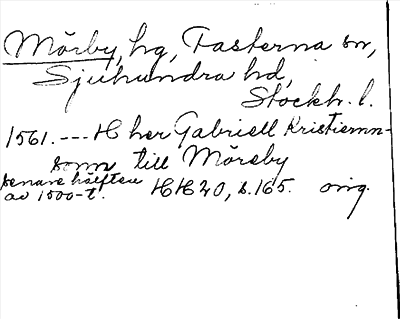 Mörby, hg, Fasterna sn,
Sjuhundra hd,
Stockh. l.
1561. --- H her Gabriell Kristiernn-
sonn till Mörsby
senare hälften
av 1500-t. HH 20, s. 165. orig.